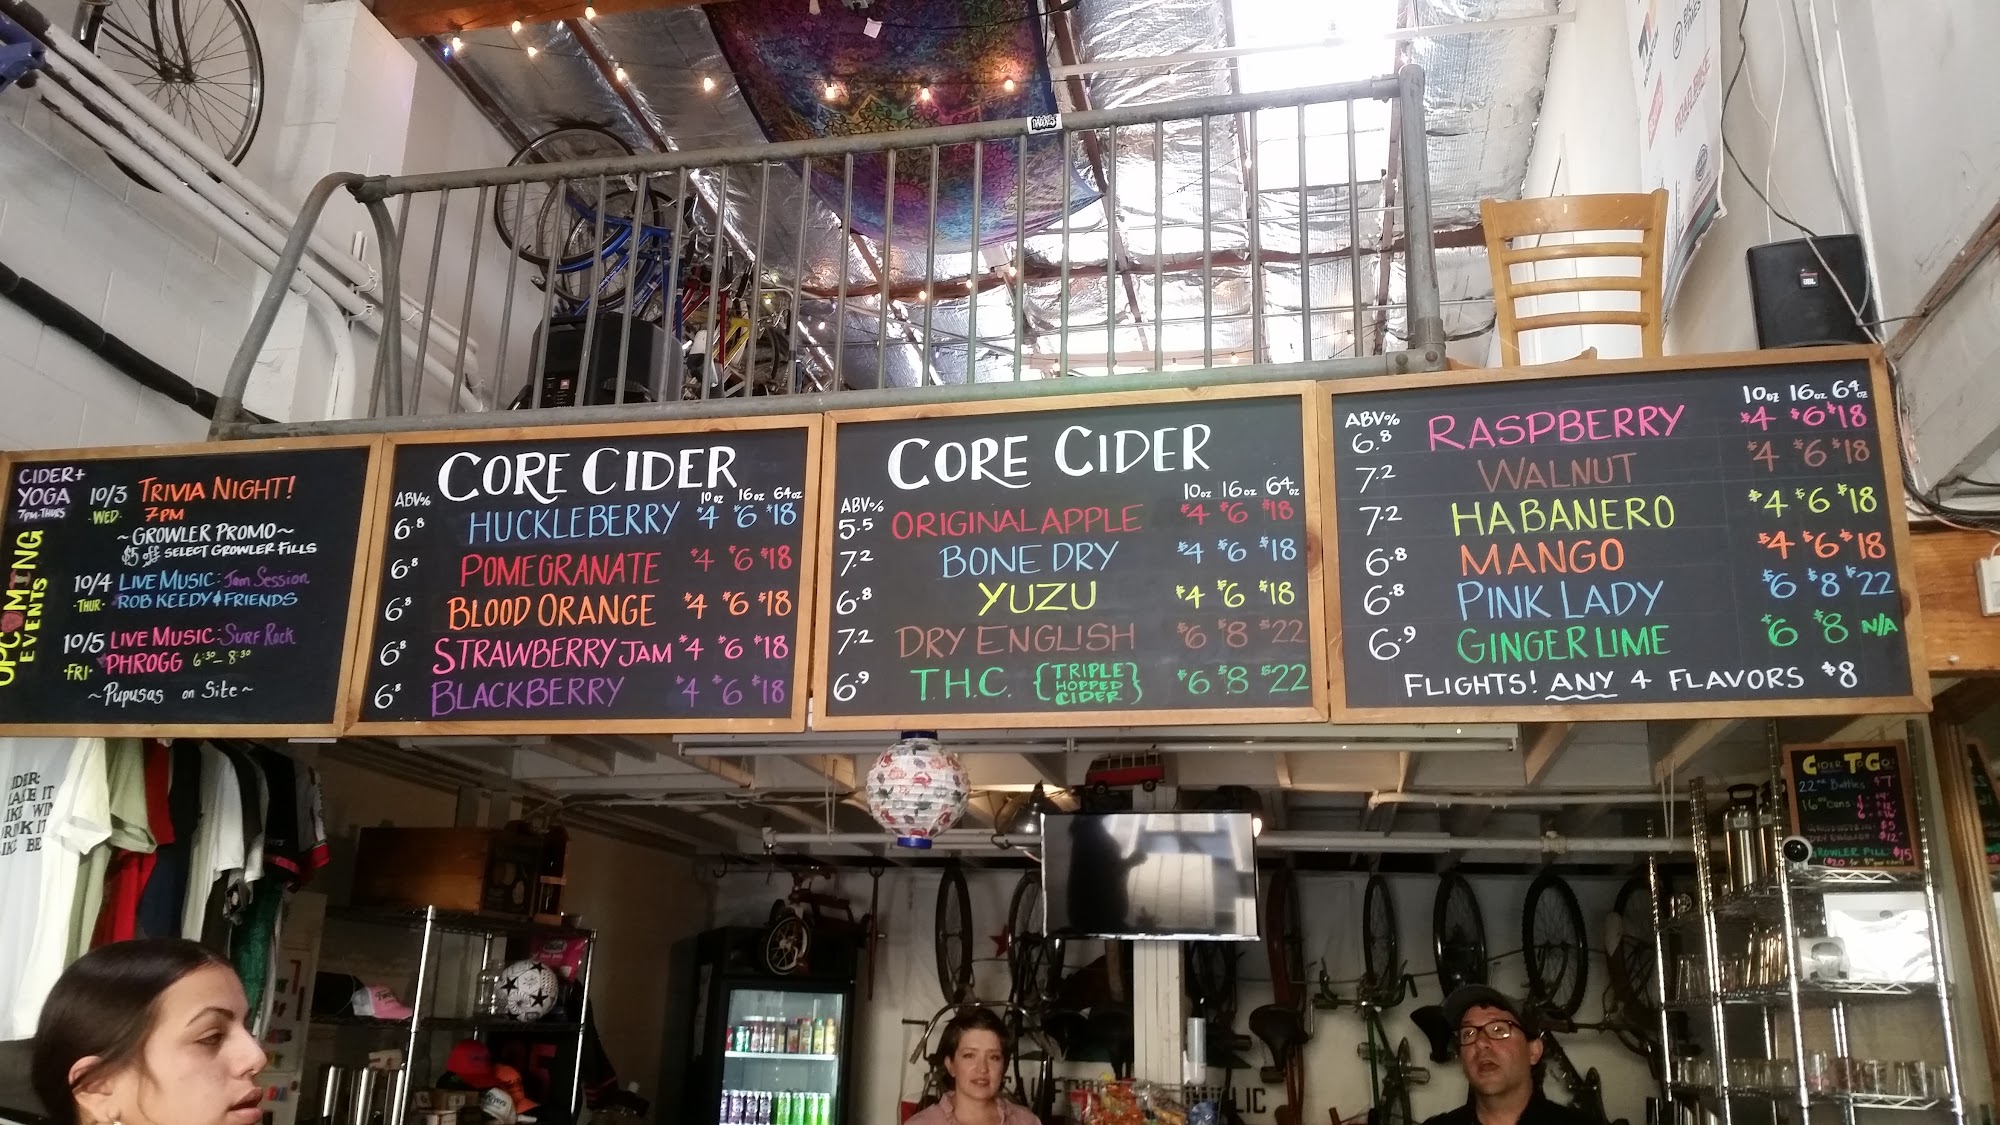 DADDIES
JBL
JBL
UPCOMING
EVENTS
CIDER +
YOGA
7PM-THURS
10/3 TRIVIA NIGHT!
·WED· 7PM
~GROWLER PROMO~
$5 off SELECT GROWLER FILLS
10/4 LIVE MUSIC: Jam Session
·THUR· ROB KEEDY & FRIENDS
10/5 LIVE MUSIC: Surf Rock
·FRI· PHROGG 6:30-8:30
~Pupusas on Site~
CORE CIDER
ABV% 10oz 16oz 64oz
6.8 HUCKLEBERRY $4 $6 $18
6.8 POMEGRANATE $4 $6 $18
6.8 BLOOD ORANGE $4 $6 $18
6.8 STRAWBERRY JAM $4 $6 $18
6.8 BLACKBERRY $4 $6 $18
CORE CIDER
ABV% 10oz 16oz 64oz
5.5 ORIGINAL APPLE $4 $6 $18
7.2 BONE DRY $4 $6 $18
6.8 YUZU $4 $6 $18
7.2 DRY ENGLISH $6 $8 $22
6.9 T.H.C. {TRIPLE HOPPED CIDER} $6 $8 $22
ABV% 10oz 16oz 64oz
6.8 RASPBERRY $4 $6 $18
7.2 WALNUT $4 $6 $18
7.2 HABANERO $4 $6 $18
6.8 MANGO $4 $6 $18
6.8 PINK LADY $6 $8 $22
6.9 GINGER LIME $6 $8 N/A
FLIGHTS! ANY 4 FLAVORS $8
CIDER TO GO!
22oz Bottles $7
16oz Cans
GROWLER FILL: $15